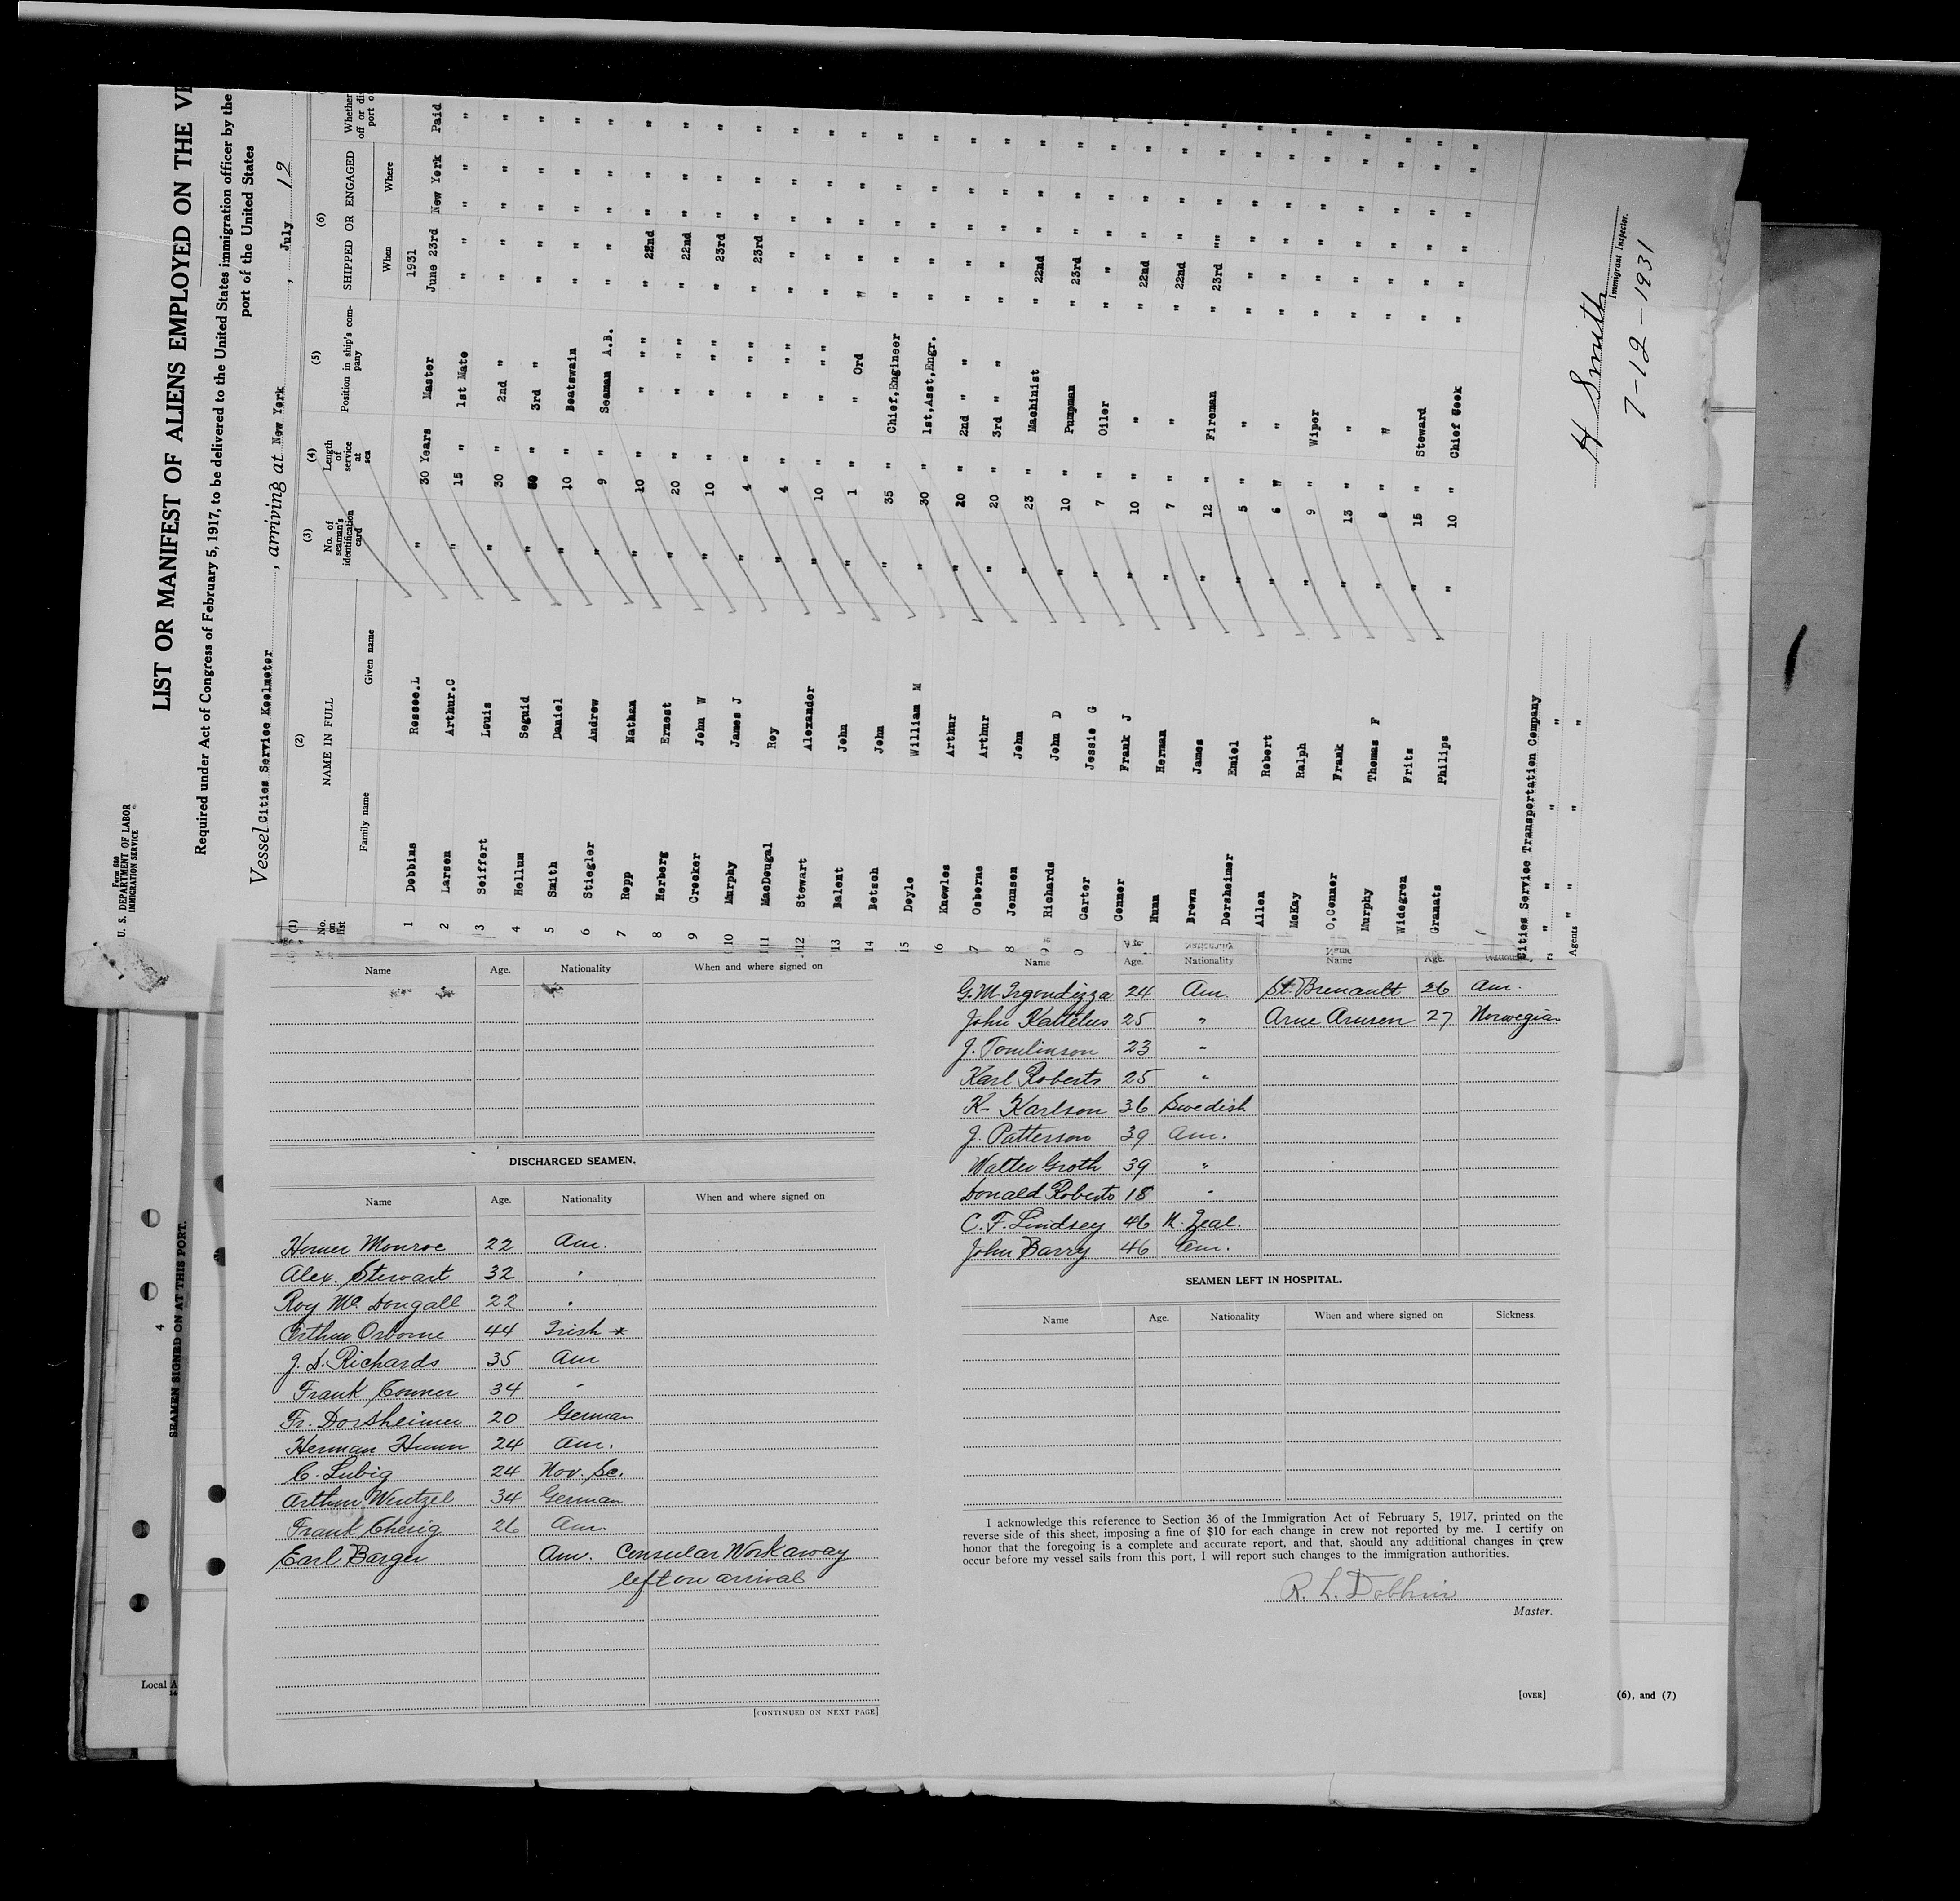 Form 680
U. S. DEPARTMENT OF LABOR
IMMIGRATION SERVICE
LIST OR MANIFEST OF ALIENS EMPLOYED ON THE VE
Required under Act of Congress of February 5, 1917, to be delivered to the United States immigration officer by the
port of the United States
Vessel Cities Service Koolmotor, arriving at New York, July 12
(1) (2) (3) (4) (5) (6)
No. on list NAME IN FULL No. of seaman's identification card Length of service at sea Position in ship's company SHIPPED OR ENGAGED Whether
Family name Given name When Where
1931
1 Dobbins Roscoe.L " 30 Years Master June 23rd New York Paid
2 Larsen Arthur.C " 15 " 1st Mate " " " " "
3 Seiffert Louis " 30 " 2nd " " " " " "
4 Hellum Seguid " " 3rd " " " " " "
5 Smith Daniel " 10 " Boatswain " " " " "
6 Stiegler Andrew " 9 " Seaman A.B. " " " " "
7 Repp Nathan " 10 " " " " " 22nd " " "
8 Herberg Ernest " 20 " " " " " 22nd " " "
9 Crocker John W " 10 " " " " " 23rd " " "
10 Murphy James J " 4 " " " " " 23rd " " "
11 MacDougal Roy " 4 " " " " " " " " "
12 Stewart Alexander " 10 " " " " " " " " "
13 Balent John " 1 " " Ord " " " " "
14 Betsch John " 35 " Chief,Engineer " " " " "
15 Doyle William M " 30 " 1st,Asst,Engr. " " " " "
16 Knowles Arthur " 20 " 2nd " " " " " " "
7 Osborne Arthur " 20 " 3rd " " " " " " "
8 Jennsen John " 23 " Machinist " 22nd " " "
9 Richards John D " 10 " Pumpman " 23rd " " "
0 Carter Jessie G " 7 " Oiler " " " " "
Conner Frank J " 10 " " " 22nd " " "
Hunn Herman " 7 " " " 22nd " " "
Brown James " 12 " Fireman " 23rd "" " "
Dorsheimer Emiel " 5 " " " " " " "
Allen Robert " 6 " " " " " " "
McKay Ralph " 9 " Wiper " " " " "
O,Conner Frank " 13 " " " " " " "
Murphy Thomas F " 8 " " " " " " "
Widegren Fritz " 15 " Steward " " " " "
Granats Philips " 10 " Chief Cook " " " " "
Cities Service Transportation Company
" " " "
Agents " " " "
H Smith
Immigrant Inspector.
7-12-1931
Name Age. Nationality When and where signed on
DISCHARGED SEAMEN.
Name Age. Nationality When and where signed on
Homer Monroe 22 Am.
Alex. Stewart 32 "
Roy McDougall 22 "
Arthur Osborne 44 Irish *
J. D. Richards 35 Am
Frank Conner 34 "
Fr. Dorsheimer 20 German
Herman Hunn 24 Am.
C. Lubig 24 Nov. Sc.
Arthur Wentzel 34 German
Frank Cherig 26 Am
Earl Barger Am. Consular Workaway
left on arrival
[CONTINUED ON NEXT PAGE]
Name Age. Nationality Name Age.
G. M. 24 Am. St. Brenault 26 Am.
John Kattelus 25 " Arne Arnsen 27 Norwegian
J. Tomlinson 23 "
Karl Roberts 25 "
K. Karlson 36 Swedish
J. Patterson 39 Am.
Walter Groth 39 "
Donald Roberts 18 "
C. F. Lindsey 46 N. Zeal.
John Barry 46 Am.
SEAMEN LEFT IN HOSPITAL.
Name Age. Nationality When and where signed on Sickness.
I acknowledge this reference to Section 36 of the Immigration Act of February 5, 1917, printed on the
reverse side of this sheet, imposing a fine of $10 for each change in crew not reported by me. I certify on
honor that the foregoing is a complete and accurate report, and that, should any additional changes in crew
occur before my vessel sails from this port, I will report such changes to the immigration authorities.
R. L. Dobbins
Master.
[OVER]
(6), and (7)
4
SEAMEN SIGNED ON AT THIS PORT.
Local A